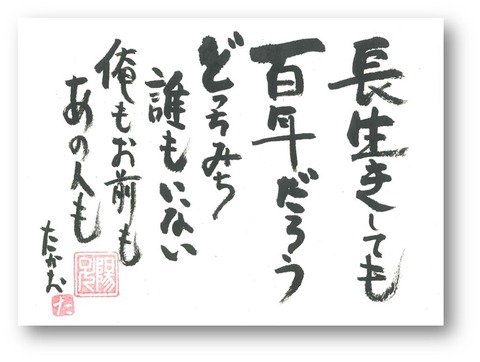 長生きしても
百年だろう
どっちみち
誰もいない
俺もお前も
あの人も
たかお
た